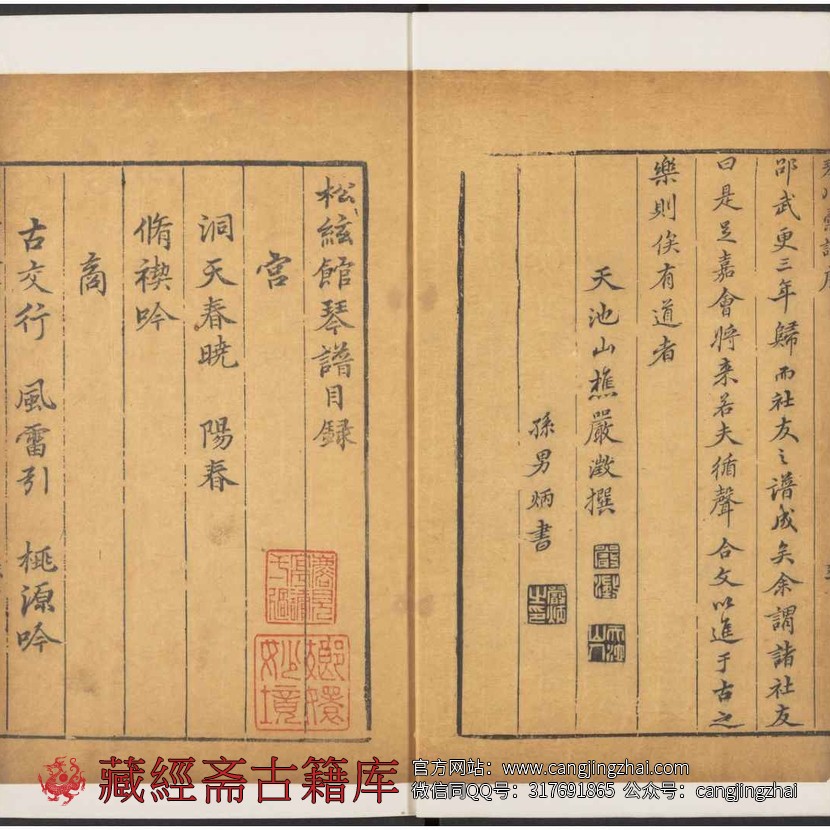 邵武更三年歸而社友之譜成矣余謂諸社友
曰是足嘉會將来若夫循聲合文以進于古之
樂則俟有道者
天池山樵嚴澂撰
孫男炳書
松絃館琴譜目録
宮
洞天春曉 陽春
脩禊吟
商
古交行 風雷引 桃源吟
嫏嬛妙境
藏經斋古籍库
官方网站：www.cangjingzhai.com
微信同QQ号：317691865 公众号：cangjingzhai